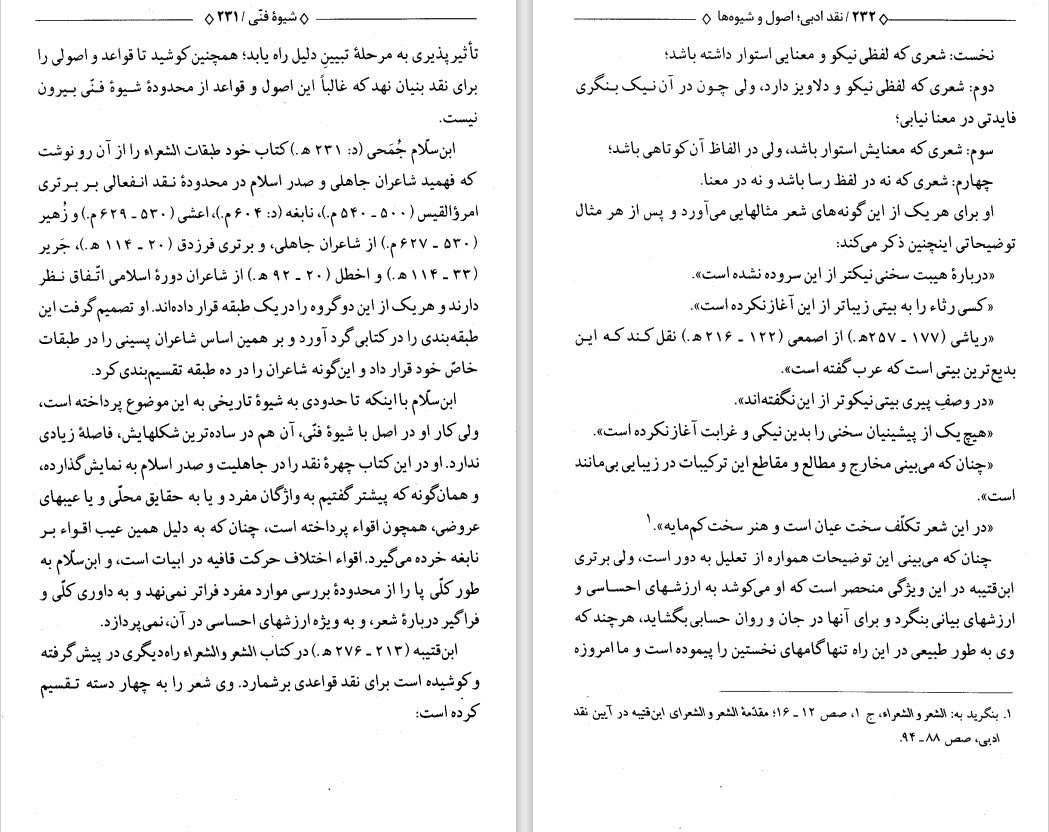 ◊ شیوۀ فنّی / ۲۳۱ ◊
تأثیرپذیری به مرحلۀ تبیینِ دلیل راه یابد؛ همچنین کوشید تا قواعد و اصولی را
برای نقد بنیان نهد که غالباً این اصول و قواعد از محدودۀ شیوۀ فنّی بیرون
نیست.
ابن‌سلّام جُمَحی (د: ۲۳۱ ه‍.) کتاب خود طبقات الشعراء را از آن رو نوشت
که فهمید شاعران جاهلی و صدر اسلام در محدودۀ نقد انفعالی بر برتری
امرؤالقیس (۵۰۰ ـ ۵۴۰ م.)، نابغه (د: ۶۰۴ م.)، اعشی (۵۳۰ ـ ۶۲۹ م.) و زُهیر
(۵۳۰ ـ ۶۲۷ م.) از شاعران جاهلی، و برتری فرزدق (۲۰ ـ ۱۱۴ ه‍.)، جَریر
(۳۳ ـ ۱۱۴ ه‍.) و اخطل (۲۰ ـ ۹۲ ه‍.) از شاعران دورۀ اسلامی اتّفاق نظر
دارند و هر یک از این دو گروه را در یک طبقه قرار داده‌اند. او تصمیم گرفت این
طبقه‌بندی را در کتابی گرد آورد و بر همین اساس شاعران پسینی را در طبقات
خاصّ خود قرار داد و این‌گونه شاعران را در ده طبقه تقسیم‌بندی کرد.
ابن‌سلّام با اینکه تا حدودی به شیوۀ تاریخی به این موضوع پرداخته است،
ولی کار او در اصل با شیوۀ فنّی، آن هم در ساده‌ترین شکلهایش، فاصلۀ زیادی
ندارد. او در این کتاب چهرۀ نقد را در جاهلیت و صدر اسلام به نمایش گذارده،
و همان‌گونه که پیشتر گفتیم به واژگان مفرد و یا به حقایق محلّی و یا عیبهای
عروضی، همچون اقواء پرداخته است، چنان که به دلیل همین عیب اقواء بر
نابغه خرده می‌گیرد. اقواء اختلاف حرکت قافیه در ابیات است، و ابن‌سلّام به
طور کلّی پا را از محدودۀ بررسی موارد مفرد فراتر نمی‌نهد و به داوری کلّی و
فراگیر دربارۀ شعر، و به ویژه ارزشهای احساسی در آن، نمی‌پردازد.
ابن‌قتیبه (۲۱۳ ـ ۲۷۶ ه‍.) در کتاب الشعر والشعراء راه دیگری در پیش گرفته
و کوشیده است برای نقد قواعدی برشمارد. وی شعر را به چهار دسته تقسیم
کرده است:
◊ ۲۳۲ / نقد ادبی؛ اصول و شیوه‌ها ◊
نخست: شعری که لفظی نیکو و معنایی استوار داشته باشد؛
دوم: شعری که لفظی نیکو و دلاویز دارد، ولی چون در آن نیک بنگری
فایدتی در معنا نیابی؛
سوم: شعری که معنایش استوار باشد، ولی در الفاظ آن کوتاهی باشد؛
چهارم: شعری که نه در لفظ رسا باشد و نه در معنا.
او برای هر یک از این گونه‌های شعر مثالهایی می‌آورد و پس از هر مثال
توضیحاتی اینچنین ذکر می‌کند:
«دربارۀ هیبت سخنی نیکتر از این سروده نشده است».
«کسی رثاء را به بیتی زیباتر از این آغاز نکرده است».
«ریاشی (۱۷۷ ـ ۲۵۷ه‍.) از اصمعی (۱۲۲ ـ ۲۱۶ ه‍.) نقل کند که این
بدیع‌ترین بیتی است که عرب گفته است».
«در وصفِ پیری بیتی نیکوتر از این نگفته‌اند».
«هیچ یک از پیشنیان سخنی را بدین نیکی و غرابت آغاز نکرده است».
«چنان که می‌بینی مخارج و مطالع و مقاطع این ترکیبات در زیبایی بی‌مانند
است».
«در این شعر تکلّف سخت عیان است و هنر سخت کم‌مایه».۱
چنان که می‌بینی این توضیحات همواره از تعلیل به دور است، ولی برتری
ابن‌قتیبه در این ویژگی منحصر است که او می‌کوشد به ارزشهای احساسی و
ارزشهای بیانی بنگرد و برای آنها در جان و روان حسابی بگشاید، هرچند که
وی به طور طبیعی در این راه تنها گامهای نخستین را پیموده است و ما امروزه
۱. بنگرید به: الشعر والشعراء، ج ۱، صص ۱۲ ـ ۱۶؛ مقدّمۀ الشعر و الشعرای ابن‌قتیبه در آیین نقد
ادبی، صص ۸۸ ـ ۹۴.